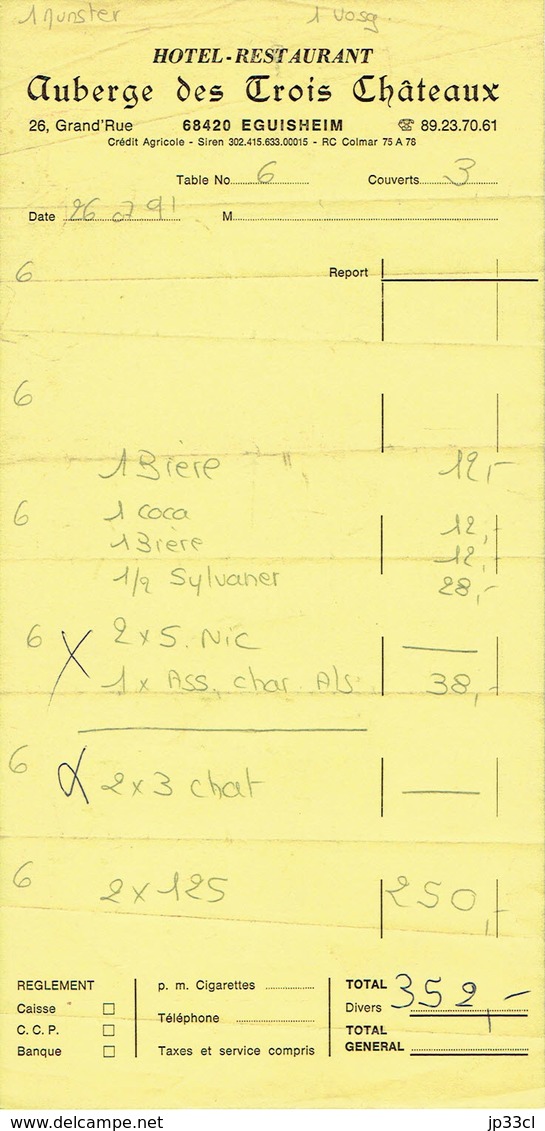 1 Munster 1 Vosg
HOTEL-RESTAURANT
Auberge des Trois Châteaux
26, Grand'Rue 68420 EGUISHEIM ☎ 89.23.70.61
Crédit Agricole - Siren 302.415.633.00015 - RC Colmar 75 A 78
Table No 6 Couverts 3
Date 26 07 91 M
6 Report
6
1 Bière " 12,-
6 1 coca 12,-
1 Bière 12,-
1/2 Sylvaner 28,-
6 2 x S. Nic —
1 x Ass. char Als 38,-
6 2 x 3 chat —
6 2 x 125 250,-
REGLEMENT p. m. Cigarettes TOTAL 352,-
Caisse Téléphone Divers
C. C. P. TOTAL
Banque Taxes et service compris GENERAL
jp33cl